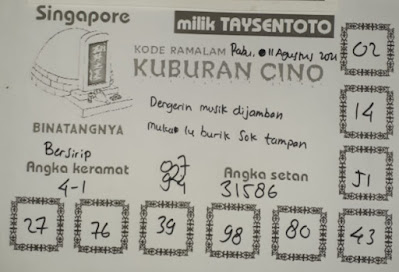 Singapore
milik TAYSENTOTO
KODE RAMALAM Rabu, 11 Agustus 2021
KUBURAN CINO
02
Dengerin musik dijamban
Muka lu burik Sok tampan
14
BINATANGNYA
Bersirip
51
Angka keramat
4-1
927
94
Angka setan
31586
27 76 39 98 80 43